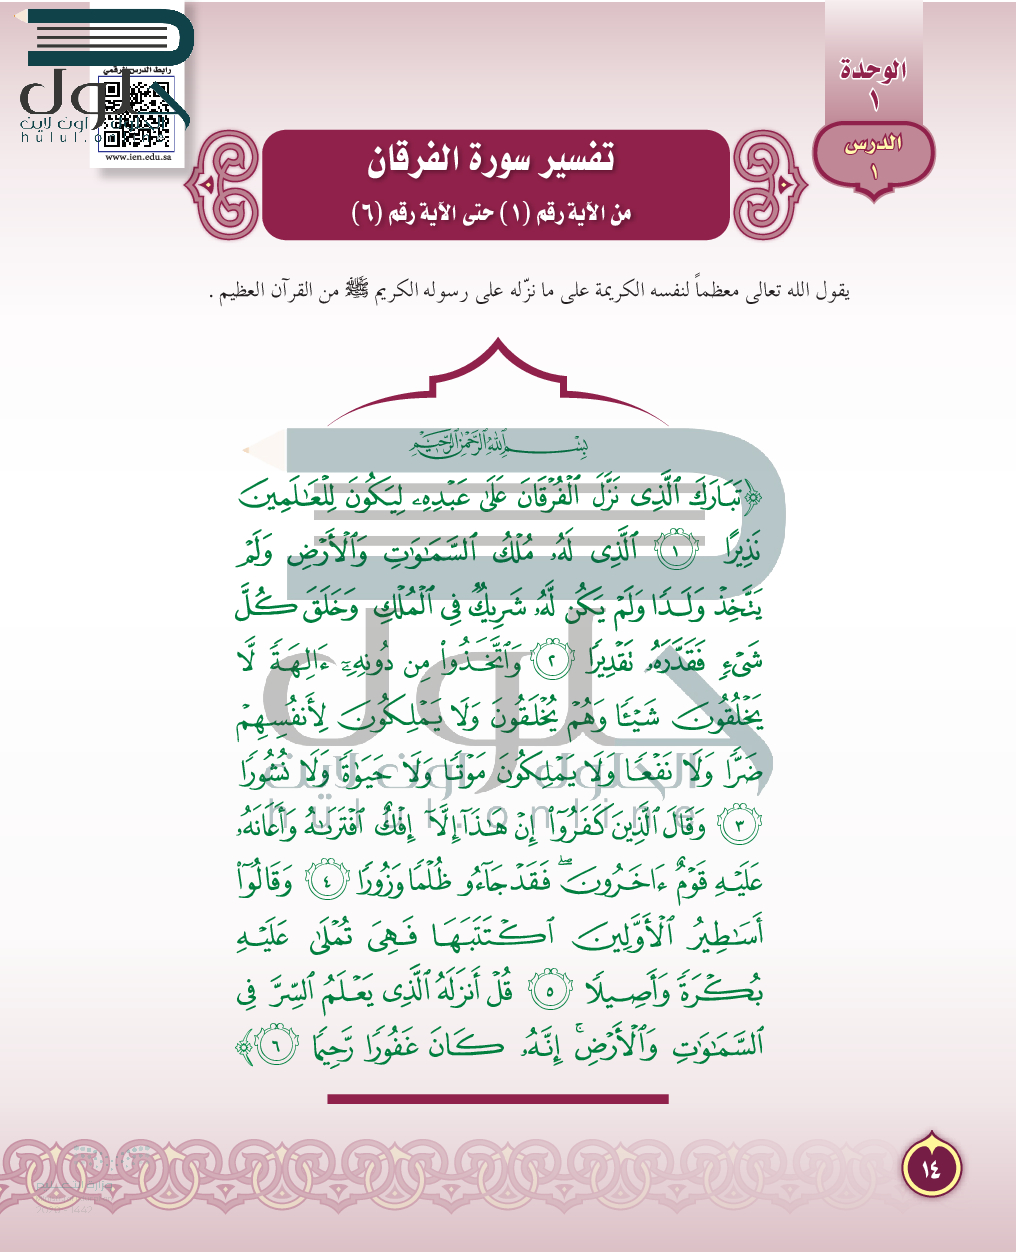 الوحدة
١
الدرس
١
رابط الدرس الرقمي
www.ien.edu.sa
حلول
الحلول اون لاين
hulul.online
تفسير سورة الفرقان
من الآية رقم (١) حتى الآية رقم (٦)
يقول الله تعالى معظماً لنفسه الكريمة على ما نزّله على رسوله الكريم ﷺ من القرآن العظيم .
بِسْمِ اللَّهِ الرَّحْمَٰنِ الرَّحِيمِ
﴿تَبَارَكَ ٱلَّذِى نَزَّلَ ٱلْفُرْقَانَ عَلَىٰ عَبْدِهِۦ لِيَكُونَ لِلْعَٰلَمِينَ
نَذِيرًا ١ ٱلَّذِى لَهُۥ مُلْكُ ٱلسَّمَٰوَٰتِ وَٱلْأَرْضِ وَلَمْ
يَتَّخِذْ وَلَدًا وَلَمْ يَكُن لَّهُۥ شَرِيكٌ فِى ٱلْمُلْكِ وَخَلَقَ كُلَّ
شَىْءٍ فَقَدَّرَهُۥ تَقْدِيرًا ٢ وَٱتَّخَذُوا۟ مِن دُونِهِۦٓ ءَالِهَةً لَّا
يَخْلُقُونَ شَيْـًٔا وَهُمْ يُخْلَقُونَ وَلَا يَمْلِكُونَ لِأَنفُسِهِمْ
ضَرًّا وَلَا نَفْعًا وَلَا يَمْلِكُونَ مَوْتًا وَلَا حَيَوٰةً وَلَا نُشُورًا
٣ وَقَالَ ٱلَّذِينَ كَفَرُوٓا۟ إِنْ هَٰذَآ إِلَّآ إِفْكٌ ٱفْتَرَىٰهُ وَأَعَانَهُۥ
عَلَيْهِ قَوْمٌ ءَاخَرُونَ ۖ فَقَدْ جَآءُو ظُلْمًا وَزُورًا ٤ وَقَالُوٓا۟
أَسَٰطِيرُ ٱلْأَوَّلِينَ ٱكْتَتَبَهَا فَهِىَ تُمْلَىٰ عَلَيْهِ
بُكْرَةً وَأَصِيلًا ٥ قُلْ أَنزَلَهُ ٱلَّذِى يَعْلَمُ ٱلسِّرَّ فِى
ٱلسَّمَٰوَٰتِ وَٱلْأَرْضِ ۚ إِنَّهُۥ كَانَ غَفُورًا رَّحِيمًا ٦﴾
١٤